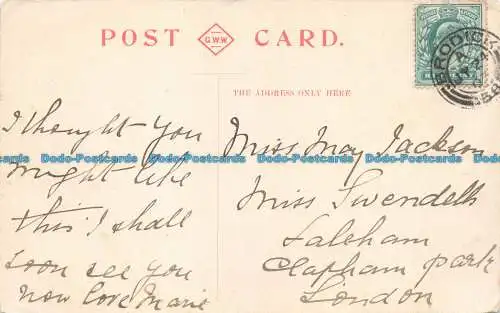 POST CARD.
G.W.W.
THE ADDRESS ONLY HERE
BRODICK
I thought you
might like
this I shall
soon see you
now love Marie
Miss May Jackson
Miss Swendells
Laleham
Clapham Park
London
Dodo-Postcards Dodo-Postcards Dodo-Postcards Dodo-Postcards
Dodo-Postcards Dodo-Postcards Dodo-Postcards Dodo-Postcards